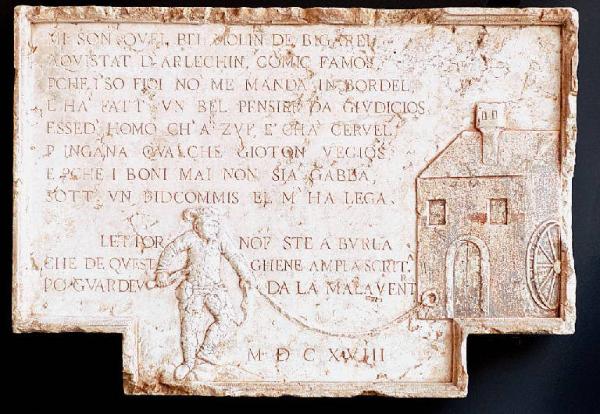 MI SON QVEL BEL MOLIN DE BIGAREL
AQVISTAT D'ARLECHIN, COMIC FAMOS,
PCHE I SO FIOI NO ME MANDA IN BORDEL,
L'HA FATT VN BEL PENSIER DA GIVDICIOS
ESSED HOMO CH'A ZVP, E CH'A CERVEL,
P INGANA QVALCHE GIOTON VEGIOS
E PCHE I BONI MAI NON SIA GABBA,
SOTT VN FIDCOMMIS EL M'HA LEGA.
LETTOR NOF STE A BVRLA
CHE DE QVEST GHENE AMPLA SCRIT.
PO GVARDEV DA LA MALAVENT
M D C XVIII